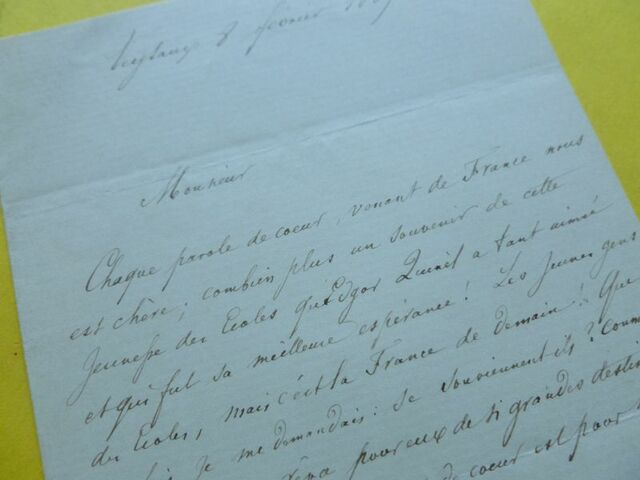 Veytaux 8 février
Monsieur
Chaque parole de coeur, venant de France nous
est chère; combien plus un souvenir de cette
Jeunesse des Ecoles qu'Edgar Quinet a tant aimée
et qui fut sa meilleure espérance! Les jeunes gens
des Ecoles, mais c'est la France de demain! Que
je me demandais: se souviennent-ils? Comme
pour eux de si grandes destin
de coeur est pour